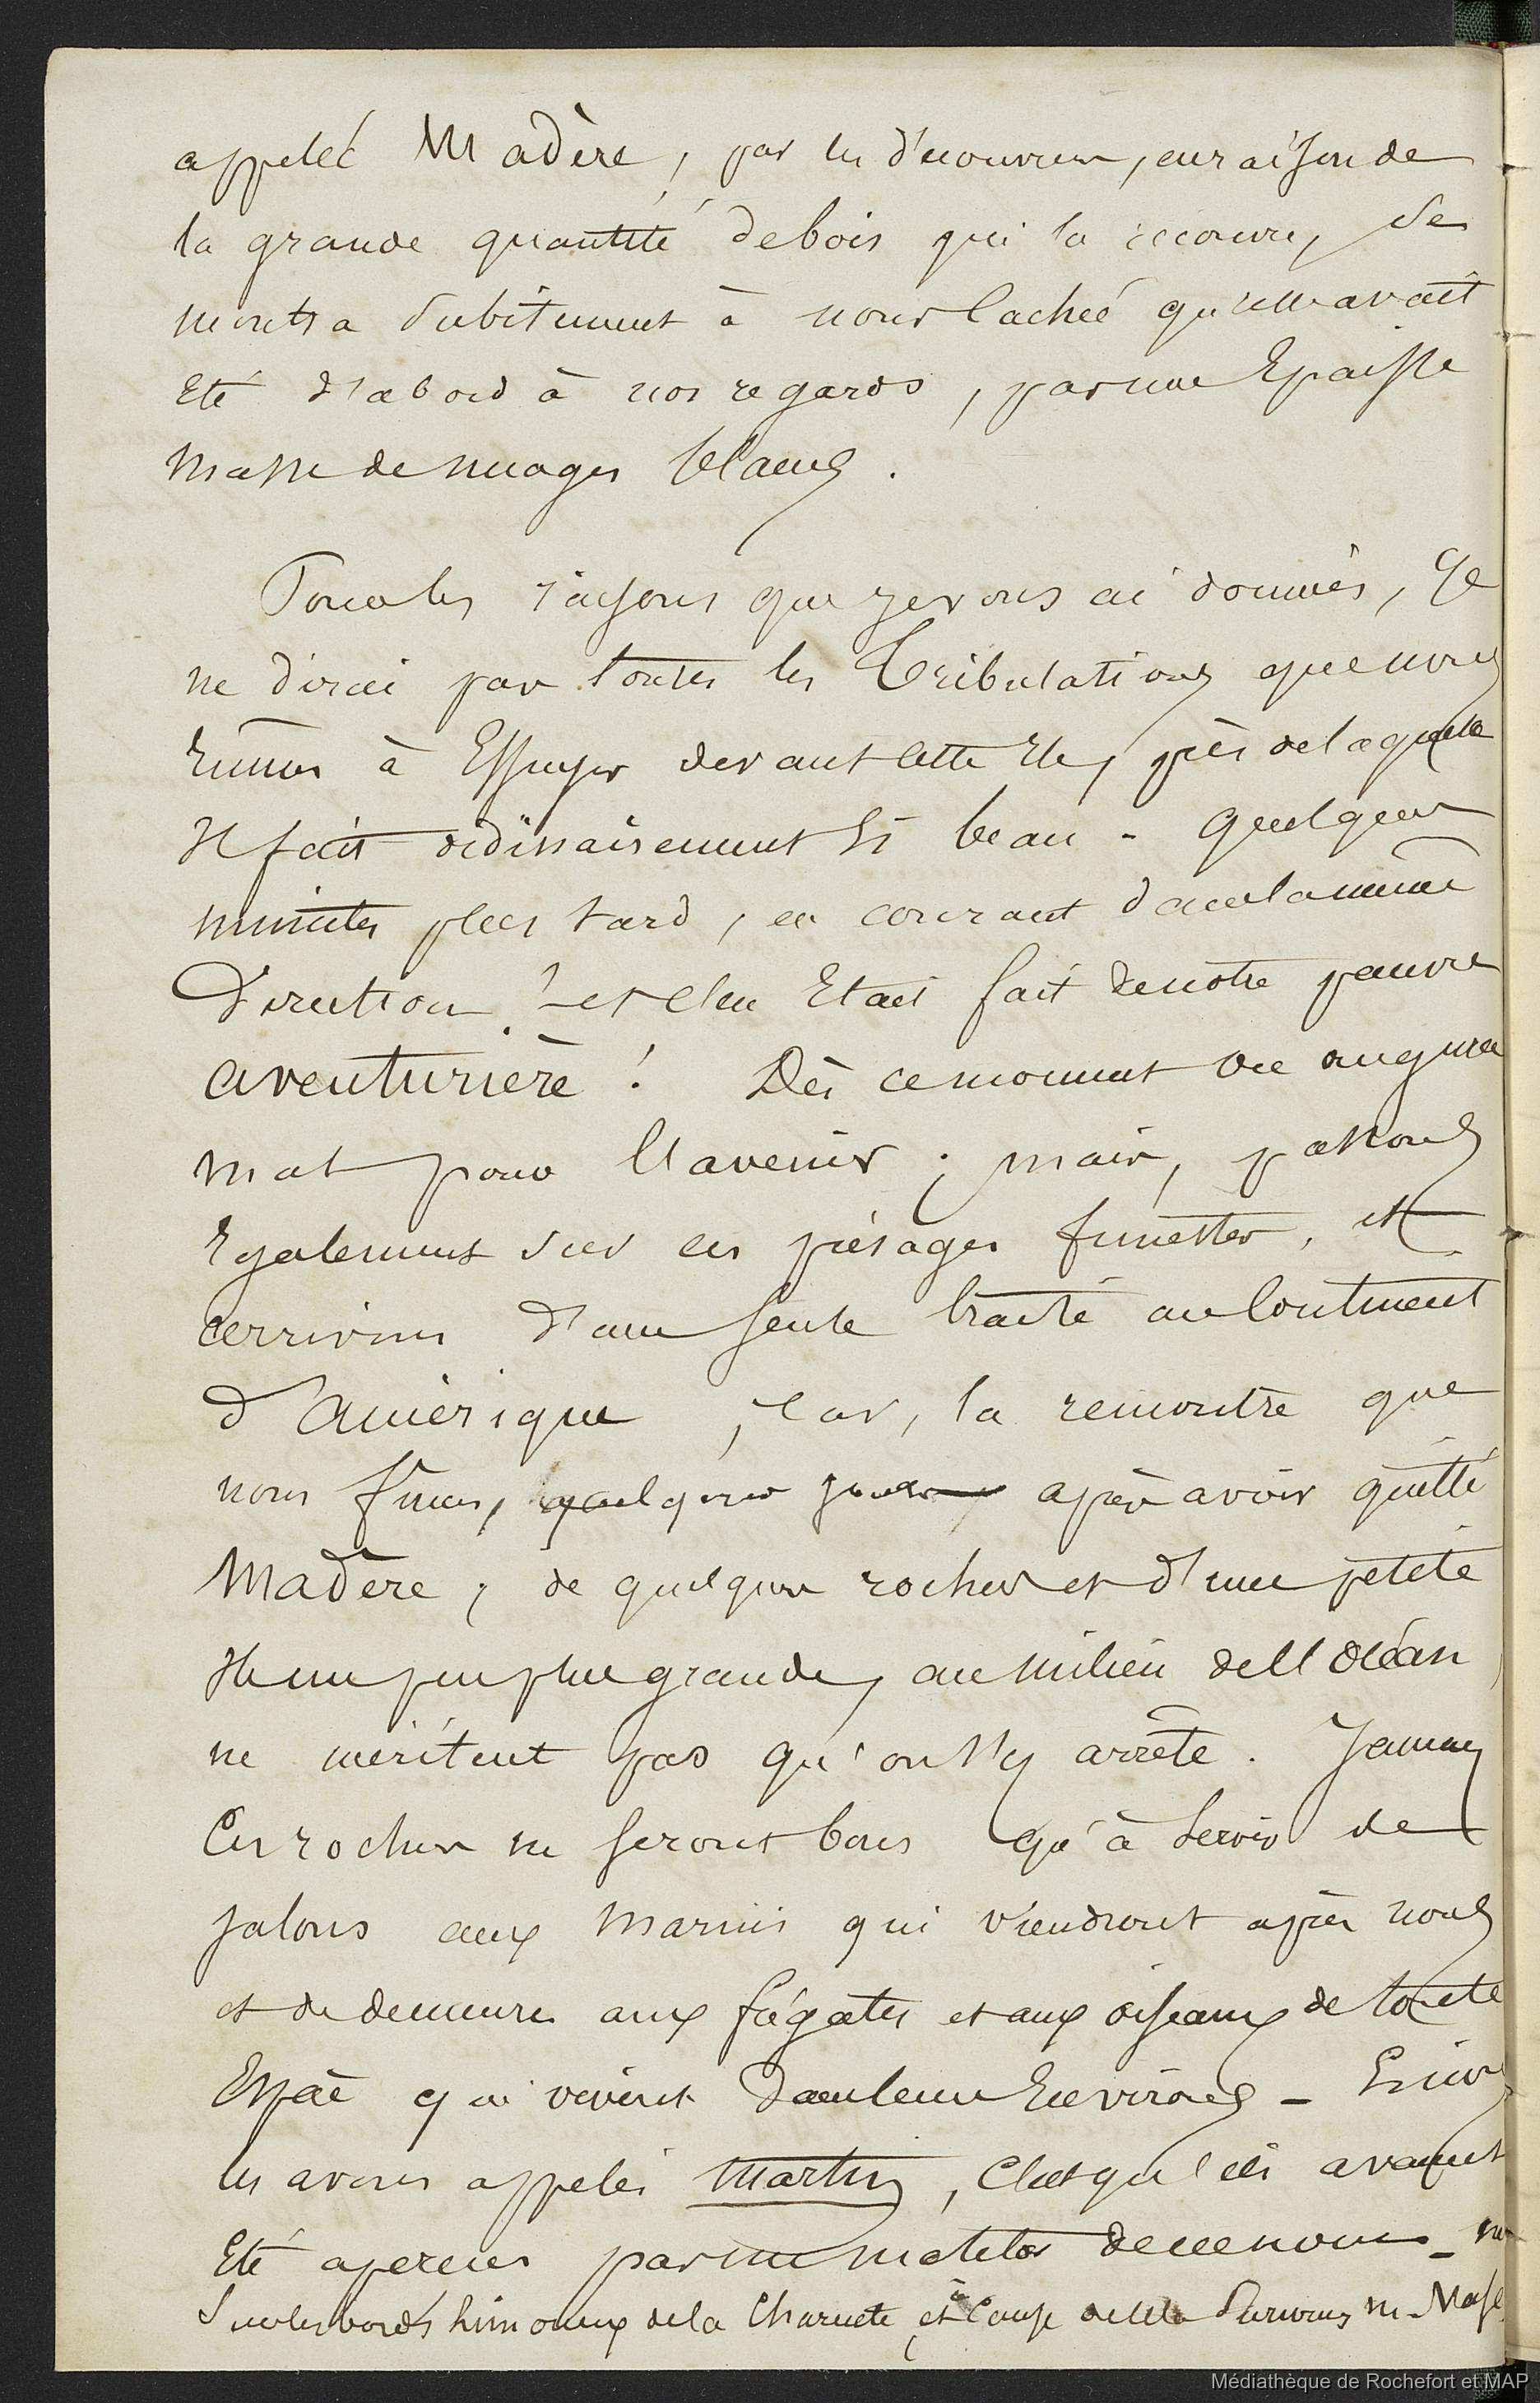 appelée Madère, par les d'écouvreurs, en raison de
la grande quantité de bois qui la recouvre, se
montra subitement à nous caché qu'elle avait
Eté d'abord à nos regards, par une Epaisse
masse de nuages blancs.
Pour les raisons que je vous ai données, je
ne dirai pas toutes les tribulations que nous
Eûmes à Essuyer devant cette Ile, près de laquelle
Il fait ordinairement si beau - quelques
minutes plus tard, en courant dans la même
Direction, et c'en Etait fait de notre pauvre
aventurière ! Dès ce moment on augura
mal pour l'avenir ; mais, passons
Egalement sur ces présages funestes, et
arrivons d'une seule traite au Continent
d'Amérique, Car, la rencontre que
nous fimes, quelques jours après avoir quitté
Madère, de quelques rochers et d'une petite
Ile un peu plus grande, au milieu de l'Océan,
ne méritent pas qu'on s'y arrête. Jamais
Ces rochers ne seront bons qu'à servir de
jalons aux marins qui viendront après nous
et de demeure aux frégates et aux oiseaux de toute
Espèce qui vivent dans leurs Environs - Si nous
les avons appelés Martin, C'est qu'ils avaient
Eté aperçus par un matelot de ce nom - né
Sur les bords limoneux de la Charente, et à Cause de